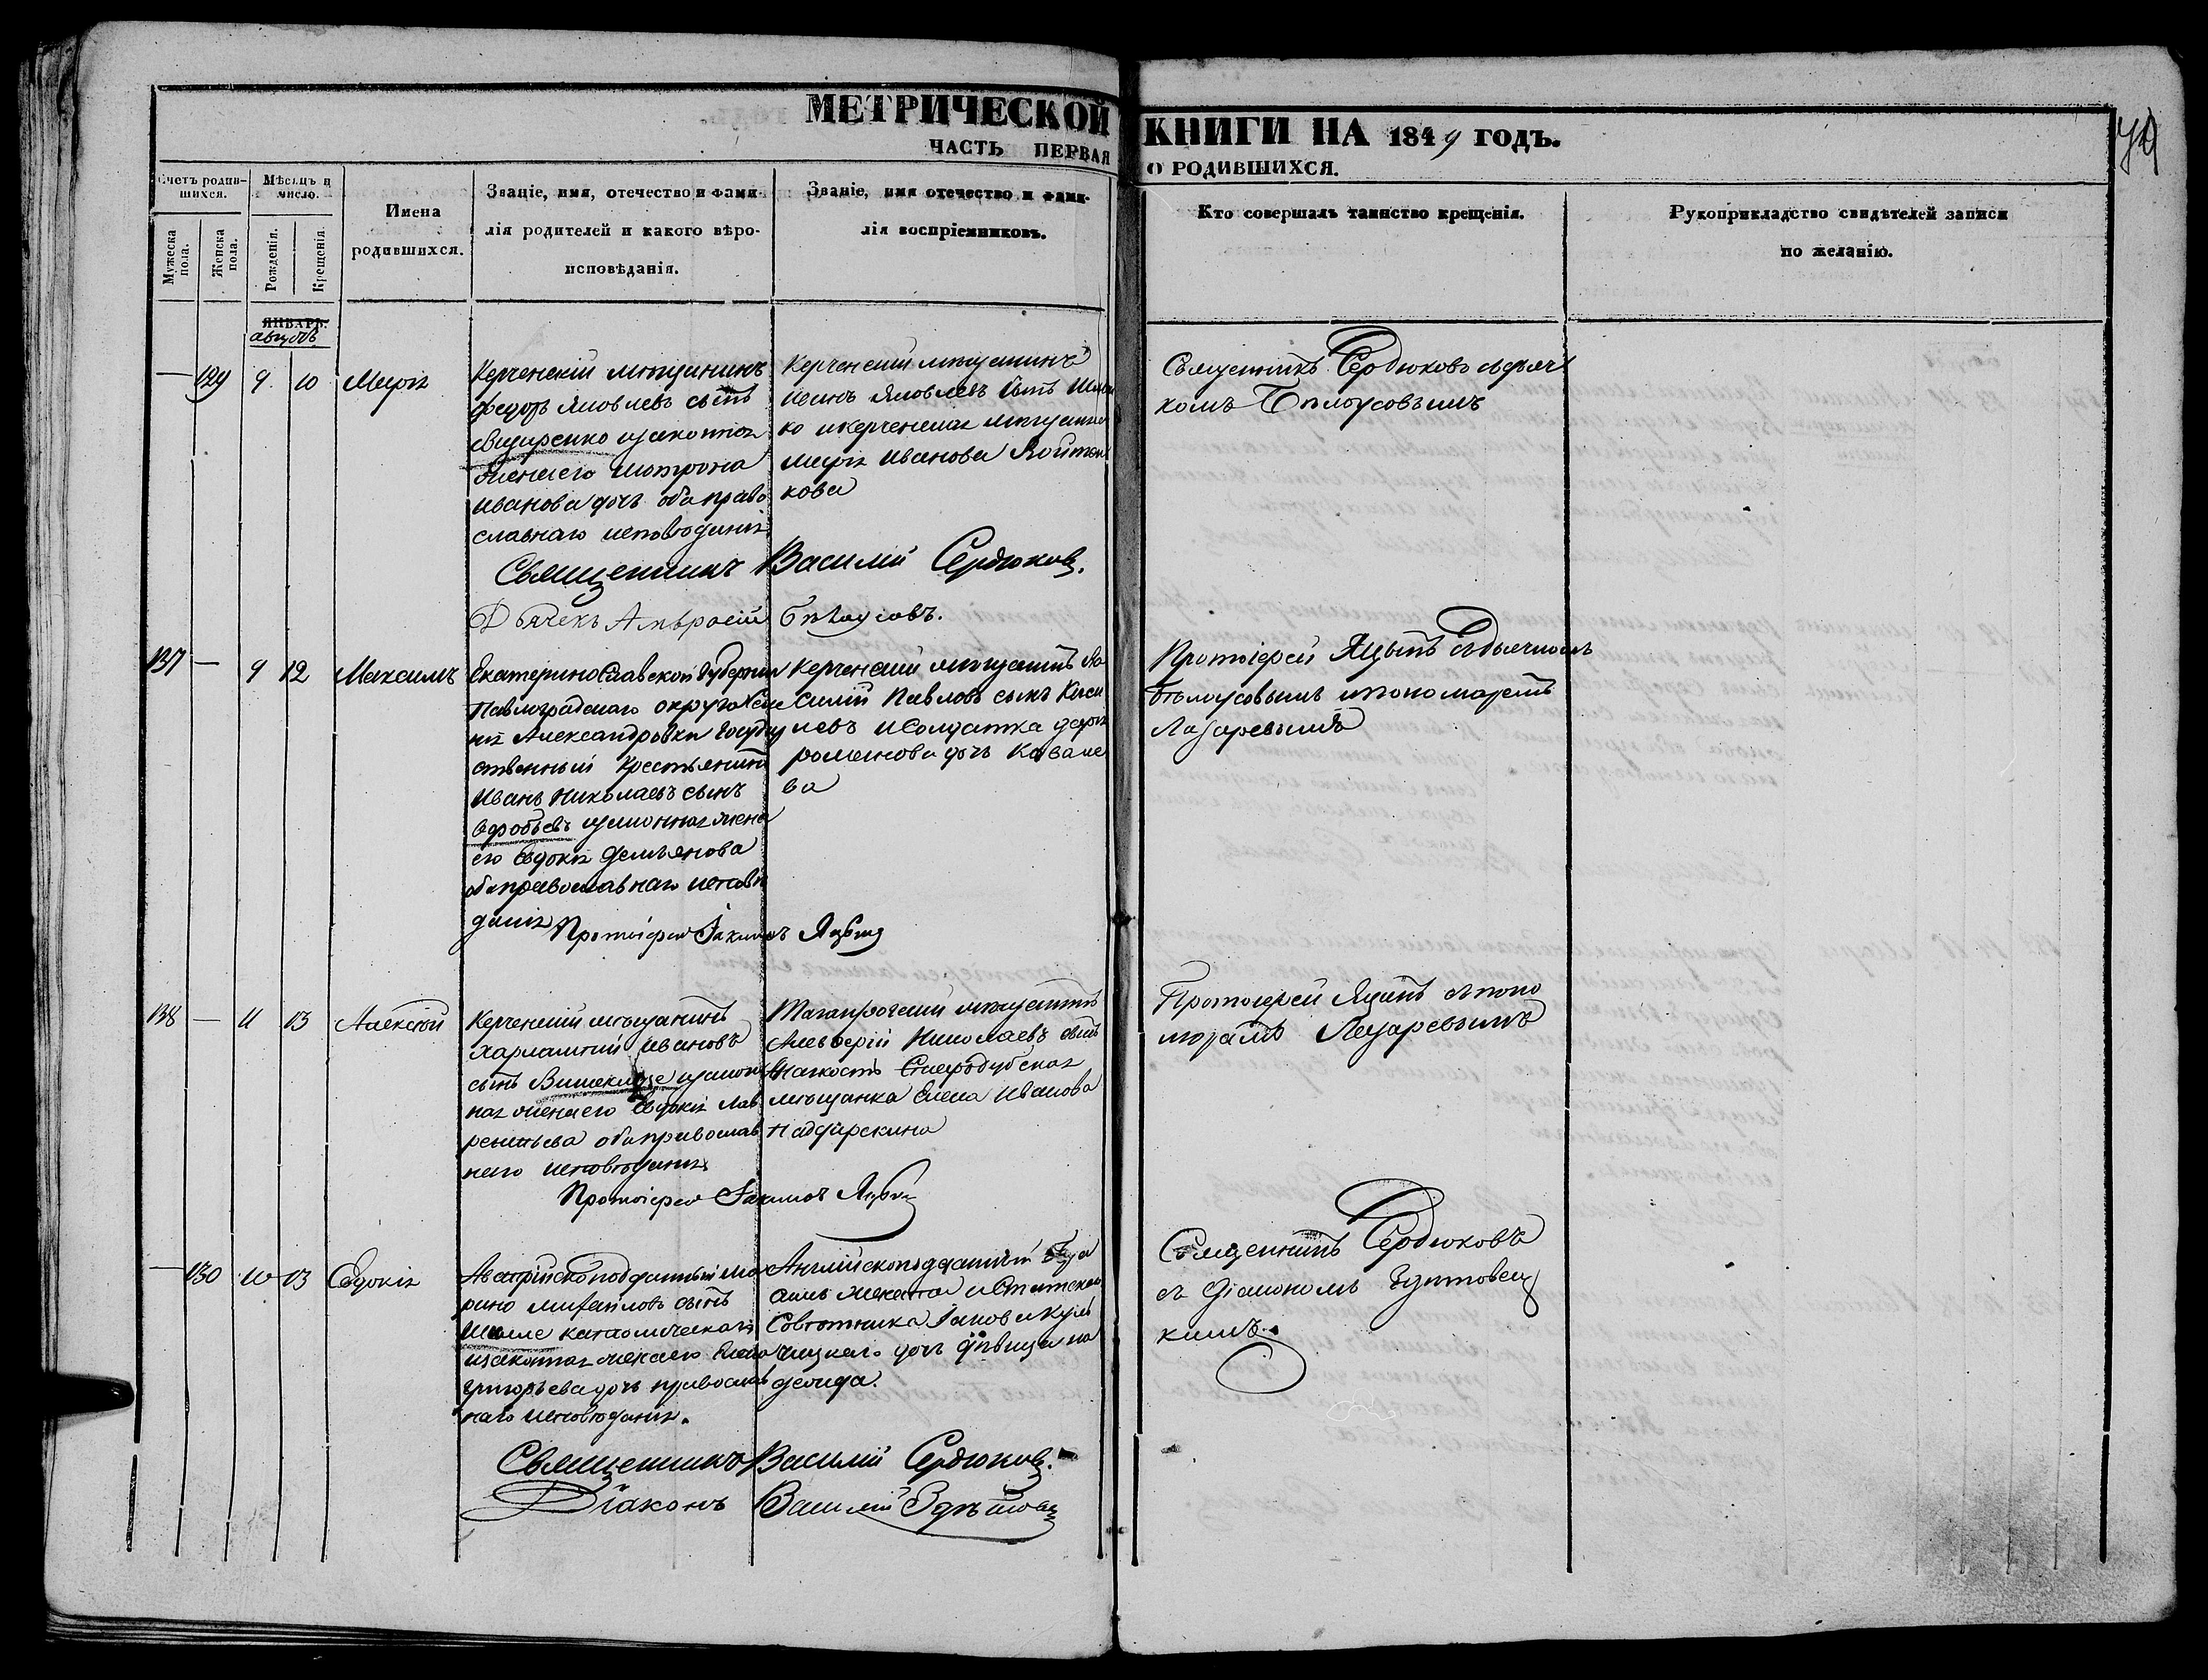 МЕТРИЧЕСКОЙ КНИГИ НА 1849 ГОДЪ.
ЧАСТЬ ПЕРВАЯ О РОДИВШИХСЯ.
74
Счетъ родившихся.
Мужеска пола.
Женска пола.
Мѣсяцъ и число.
Рожденія.
Крещенія.
Имена родившихся.
Званіе, имя, отечество и фами-
лія родителей и какого вѣро-
исповѣданія.
Званіе, имя отечество и фами-
лія воспріемниковъ.
Кто совершалъ таинство крещенія.
Рукоприкладство свидѣтелей записи
по желанію.
ЯНВАРЬ.
августъ
— 129 9 10 Марія
Керченскій мѣщанинъ
Федоръ Яковлевъ сынъ
законная
жена его Матрона
Иванова дочь оба право
славнаго исповѣданія
Керченскій мѣщанинъ
Яковлевъ сынъ
ко и керченская мѣщанка
Марія Иванова
кова
Священникъ Сердюковъ съ дьяч
комъ Бѣлоусовымъ
Священникъ Василій Сердюковъ.
Дьячекъ Амвросій Бѣлоусовъ.
137 — 9 12 Максимъ
Екатеринославской Губерніи
Павлоградскаго округа
Александровки Государ
ственный крестьянинъ
Иванъ Николаевъ сынъ
законная жена
его Евдокія Демьянова
оба православнаго исповѣ
данія
Керченскій мѣщанинъ Ва
силій Павловъ сынъ Кисе
левъ и Солдатка Дарія
Романова дочь Ковале
ва
Протоіерей Яцынъ съ дьячкомъ
Бѣлоусовымъ и пономаремъ
Лазаревымъ
Протоіерей Іакимъ Яцынъ
138 — 11 13 Алексѣй
Керченскій мѣщанинъ
Харлампій Ивановъ
сынъ закон
ная жена его Евдокія Лав
рентьева оба православ
наго исповѣданія
Таганрогскій мѣщанинъ
Николаевъ сынъ
Стародубская
мѣщанка Елена Иванова
Протоіерей Яцынъ съ поно
маремъ Лазаревымъ
Протоіерей Іакимъ Яцынъ
— 130 10 13 Евдокія
Австрійскоподданный Ма
рино Михайловъ сынъ
католическаго
и законная жена его Елена
Григорьева дочь православ
наго исповѣданія.
Англійскоподданный
и Статскаго
Совѣтника Іакова
дочь дѣвица
Священникъ Сердюковъ
съ Діакономъ Здѣтовец
кимъ.
Священникъ Василій Сердюковъ.
Діаконъ Василій